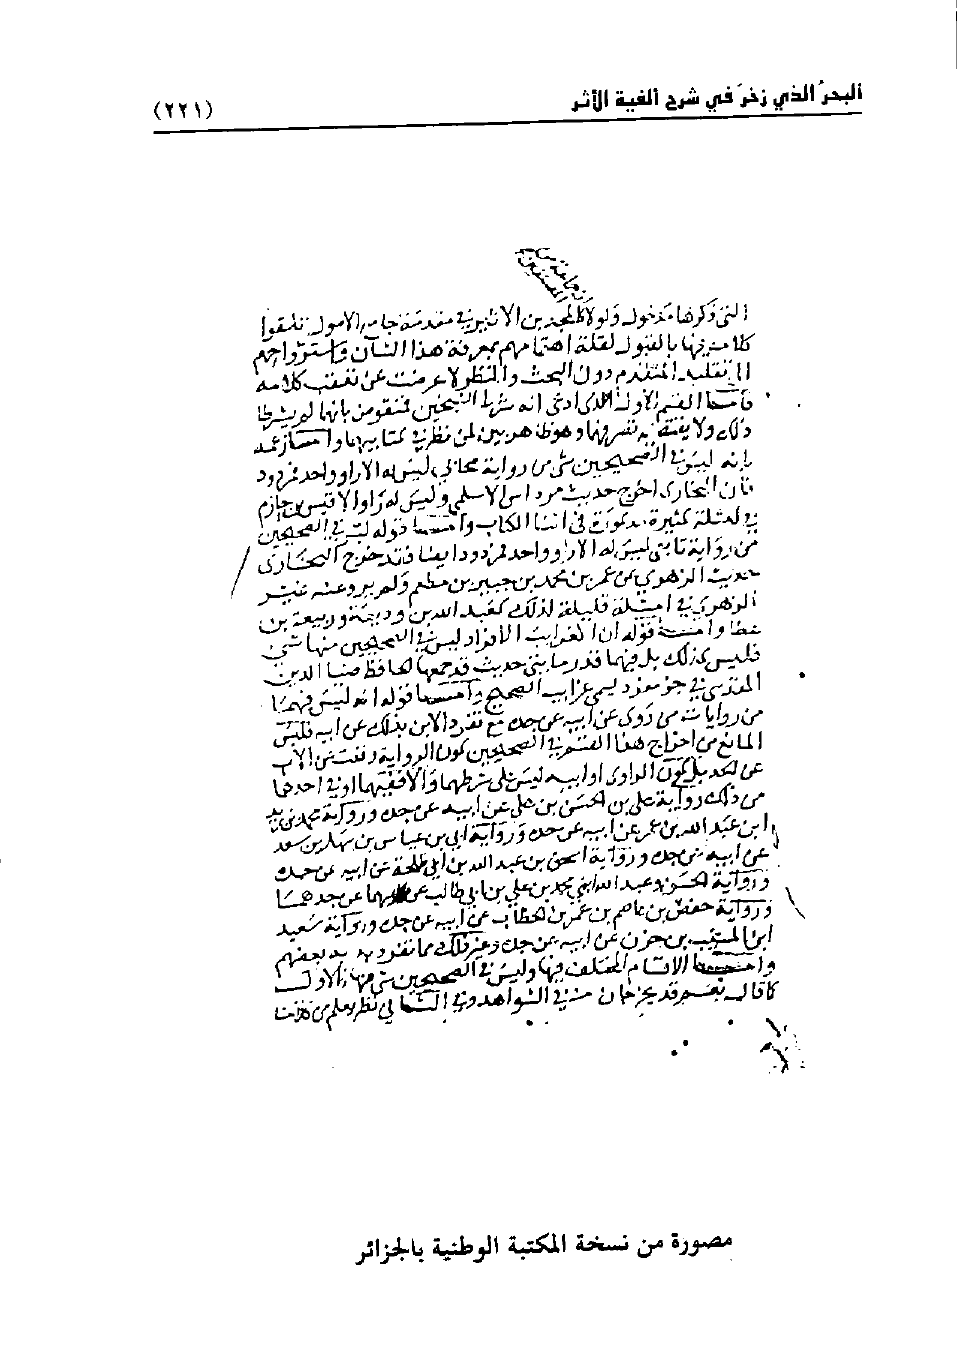 البحرُ الذي زخرَ في شرح ألفية الأثر
(٢٢١)
التي ذكرها مدخول ولولا المجد بن الاثير في مقدمة جامع الاصول تلقوا
كلامه فيها بالقبول لقلة اهتمامهم بمعرفة هذا الشان واسترواحهم
الى تقليد المتقدم دون البحث والنظر لاعرضت عن تعقب كلامه
فأما القسم الاول الذي ادعى انه شرط الشيخين فمنقوض بانهما لم يشترطا
ذلك ولا يقتضيه تصرفهما وهو ظاهر بين لمن نظر في كتابيهما واما زعمه
بانه ليس في الصحيحين شي من رواية صحابي ليس له الا راو واحد فمردود
بأن البخاري اخرج حديث مرداس الاسلمي وليس له راو الا قيس بن حازم
في امثلة كثيرة مذكورة في اثنا الكتاب واما قوله ليس في الصحيحين
من رواية تابعي ليس له الا راو واحد فمردود ايضا فقد خرج البخاري
حديث الزهري عن عمر بن محمد بن جبير بن مطعم ولم يرو عنه غير
الزهري في امثلة قليلة لذلك كعبد الله بن وديعة وربيعة بن
عطا واما قوله ان الغرايب الافراد ليس في الصحيحين منها شي
فليس كذلك بل فيهما قدر مايتي حديث قد جمعها الحافظ ضيا الدين
المقدسي في جزء مفرد يسمى غرايب الصحيح واما قوله انه ليس فيهما
من روايات من روى عن ابيه عن جده مع تفرد الابن بذلك عن ابيه فليس
المانع من اخراج هذا القسم في الصحيحين كون الرواية وقعت عن الاب
عن الجد بل كون الراوي او ابيه ليس على شرطهما والا ففيهما او في احدهما
من ذلك رواية علي بن الحسين بن علي عن ابيه عن جده ورواية محمد بن زيد
ابن عبد الله بن عمر عن ابيه عن جده ورواية ابي بن عباس بن سهل بن سعد
عن ابيه عن جده ورواية اسحق بن عبد الله بن ابي طلحة عن ابيه عن جده
ورواية الحسن وعبد الله ابني محمد بن علي بن ابي طالب عن ابيهما عن جدهما
ورواية حفص بن عاصم بن عمر بن الخطاب عن ابيه عن جده ورواية سعيد
ابن المسيب بن حزن عن ابيه عن جده وغير ذلك مما تفرد به بعضهم
واما الاقسام المختلف فيها وليس في الصحيحين شي منها فالاول
كما قال نعم قد يخرجان منه في الشواهد وفي الثاني نظر يعلم من كلامنا
مصورة من نسخة المكتبة الوطنية بالجزائر